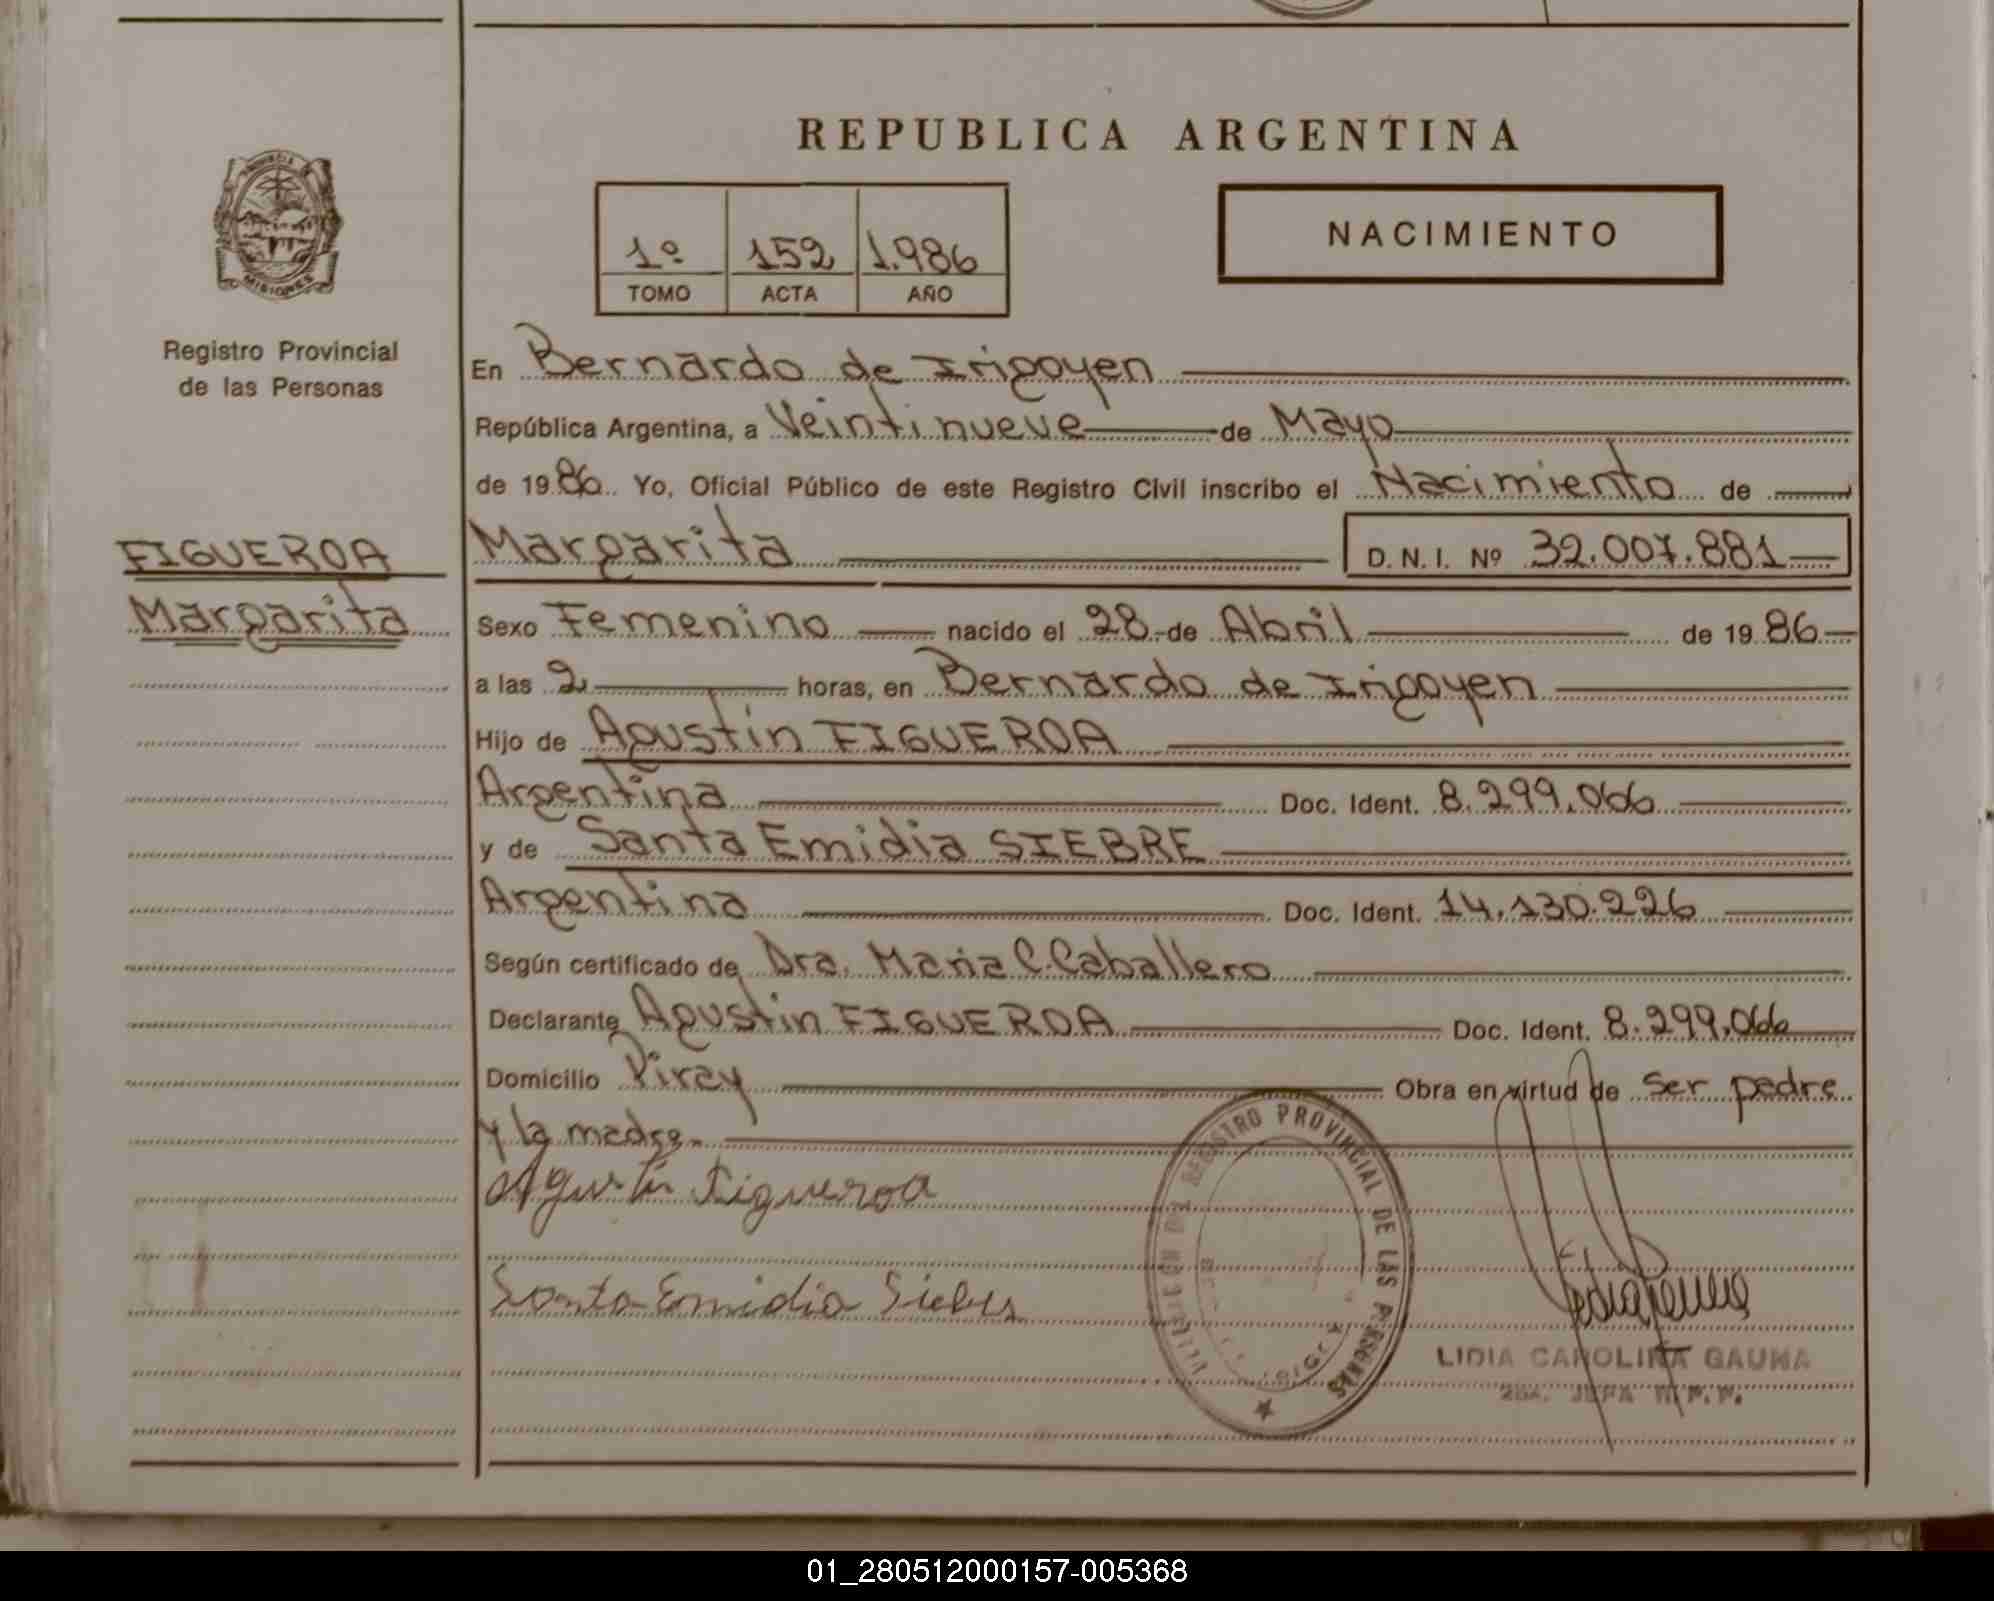 REPUBLICA ARGENTINA
MISIONES
1º 152 1.986
TOMO ACTA AÑO
NACIMIENTO
Registro Provincial
de las Personas
FIGUEROA
Margarita
En Bernardo de Irigoyen
República Argentina, a Veintinueve de Mayo
de 1986 Yo, Oficial Público de este Registro Civil inscribo el Nacimiento de
Margarita D.N.I. Nº 32.007.881
Sexo Femenino nacido el 28 de Abril de 1986
a las 2 horas, en Bernardo de Irigoyen
Hijo de Agustín FIGUEROA
Argentina Doc. Ident. 8.299.066
y de Santa Emidia SIEBRE
Argentina Doc. Ident. 14.130.226
Según certificado de Dra. Maria C. Caballero
Declarante Agustin FIGUEROA Doc. Ident. 8.299.066
Domicilio Piray Obra en virtud de ser padre
y la madre.
Agustín Figueroa
Santa Emidia
REGISTRO PROVINCIAL DE LAS PERSONAS
LIDIA CAROLINA GAUNA
JEFA
01_280512000157-005368